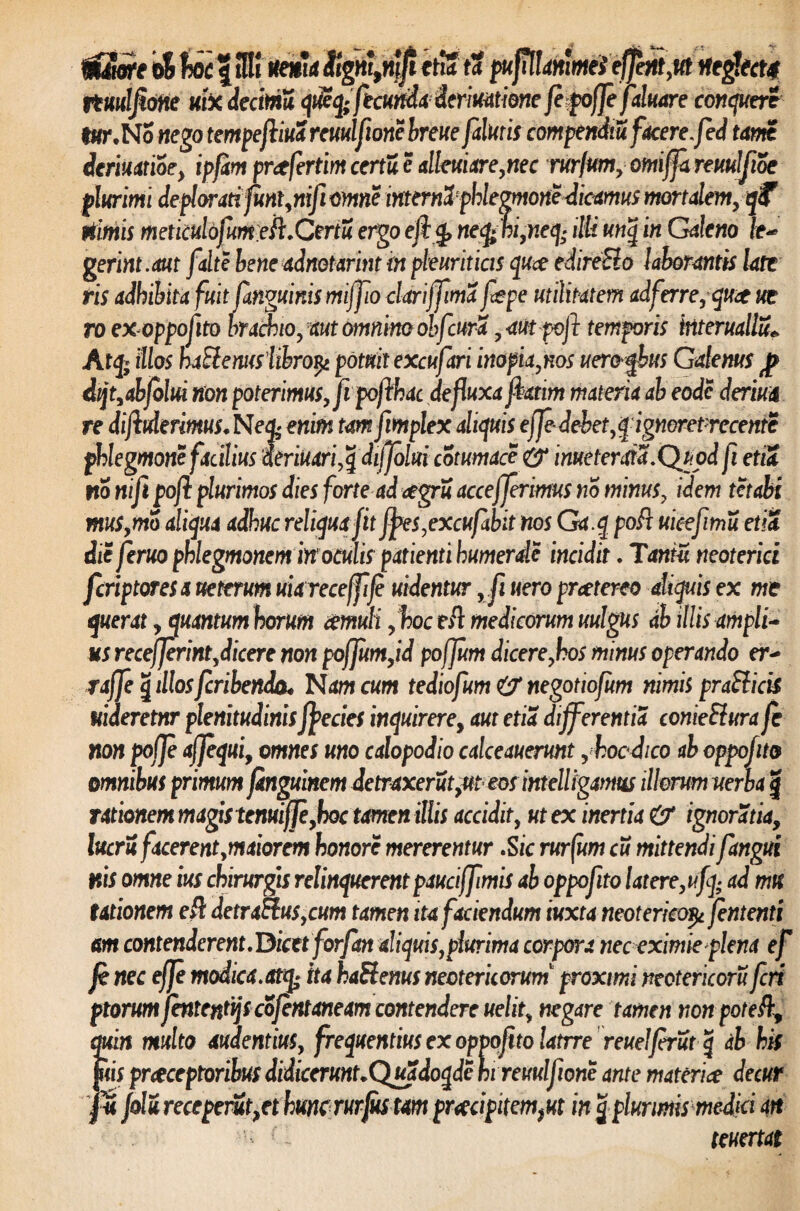 maiore ob hoc ꝗ̃ illi uenia digni,nisi etiã tã pusillanimes essent,ut neglecta
reuulsione uix decimũ quẽq; secunda deriuatione se posse saluare conquerẽ
tur.Nõ nego tempestiuã reuulsionẽ breue salutis compendiũ facere.sed tamẽ
deriuatiõe, ipsam præsertim certũ ẽ alleuiare,nec rursum, omissa reuulsiõe
plurimi deplorati sunt,nisi omnẽ internã phlegmonẽ dicamus mortalem, qđ
nimis meticulosum est.Certũ ergo est ꝙ neq; hi,neq; illi unꝗ̃ in Galeno le-
gerint.aut saltẽ bene adnotarint in pleuriticis quæ ediresto laborantis late
ris adhibita fuit sanguinis missio clarissimã sæpe utilitatem adferre, quæ ue
ro ex opposito brachio, aut omnino obscurã, aut post temporis interuallũ.
Atq; illos hactenus libroꝝ potuit excusari inopia,nos uero ꝗbus Galenus ꝓ
dijt,absolui non poterimus, si posthac defluxa statim materia ab eodẽ deriua
re distulerimus.Neq; enim tam simplex aliquis esse debet,ꝗ ignoret recentẽ
phlegmonẽ facilius deriuari,ꝗ̃ dissolui cõtumacẽ & inueteratã.Quod si etiã
nõ nisi post plurimos dies forte ad ægrũ accesserimus nõ minus, idem tẽtabi
mus,mõ aliqua adhuc reliqua sit spes,excusabit nos Ga.ꝗ post uicesimũ etiã
diẽ feruo phlegmonem in oculis patienti humeralẽ incidit. Tantũ neoterici
scriptores a ueterum uia recessisse uidentur, si uero prætereo aliquis ex me
querat, quantum horum æmuli, hoc est medicorum uulgus ab illis ampli-
us recesserint,dicere non possum,id possum dicere,hos minus operando er-
rasse ꝗ̃ illos scribendo. Nam cum tediosum & negotiosum nimis practicis
uideretur plenitudinis species inquirere, aut etiã differentiã coniectura se
non posse assequi, omnes uno calopodio calceauerunt, hoc dico ab opposito
omnibus primum sanguinem detraxerũt,ut eos intelligamus illorum uerba ꝗ̃
rationem magis tenuisse,hoc tamen illis accidit, ut ex inertia & ignorãtia,
lucrũ facerent,maiorem honorẽ mererentur .Sic rursum cũ mittendi sangui
nis omne ius chirurgis relinquerent paucissimis ab opposito latere,usq; ad mu
tationem est detractus,cum tamen ita faciendum iuxta neotericoꝝ sententi
am contenderent.Dicet forsan aliquis,plurima corpora nec eximie plena es
se nec esse modica.atq; ita hactenus neotericorum proximi neotericorũ scri
ptorum sententijs cõsentaneam contendere uelit, negare tamen non potest,
quin multo audentius, frequentius ex opposito latrre reuelserũt ꝗ̃ ab his
suis præceptoribus didicerunt.Quãdoqdẽ hi reuulsionẽ ante materiæ decur
sũ solũ receperũt,et hunc rursus tam præcipitem,ut in ꝗ̃ plurimis medici an
teuertat